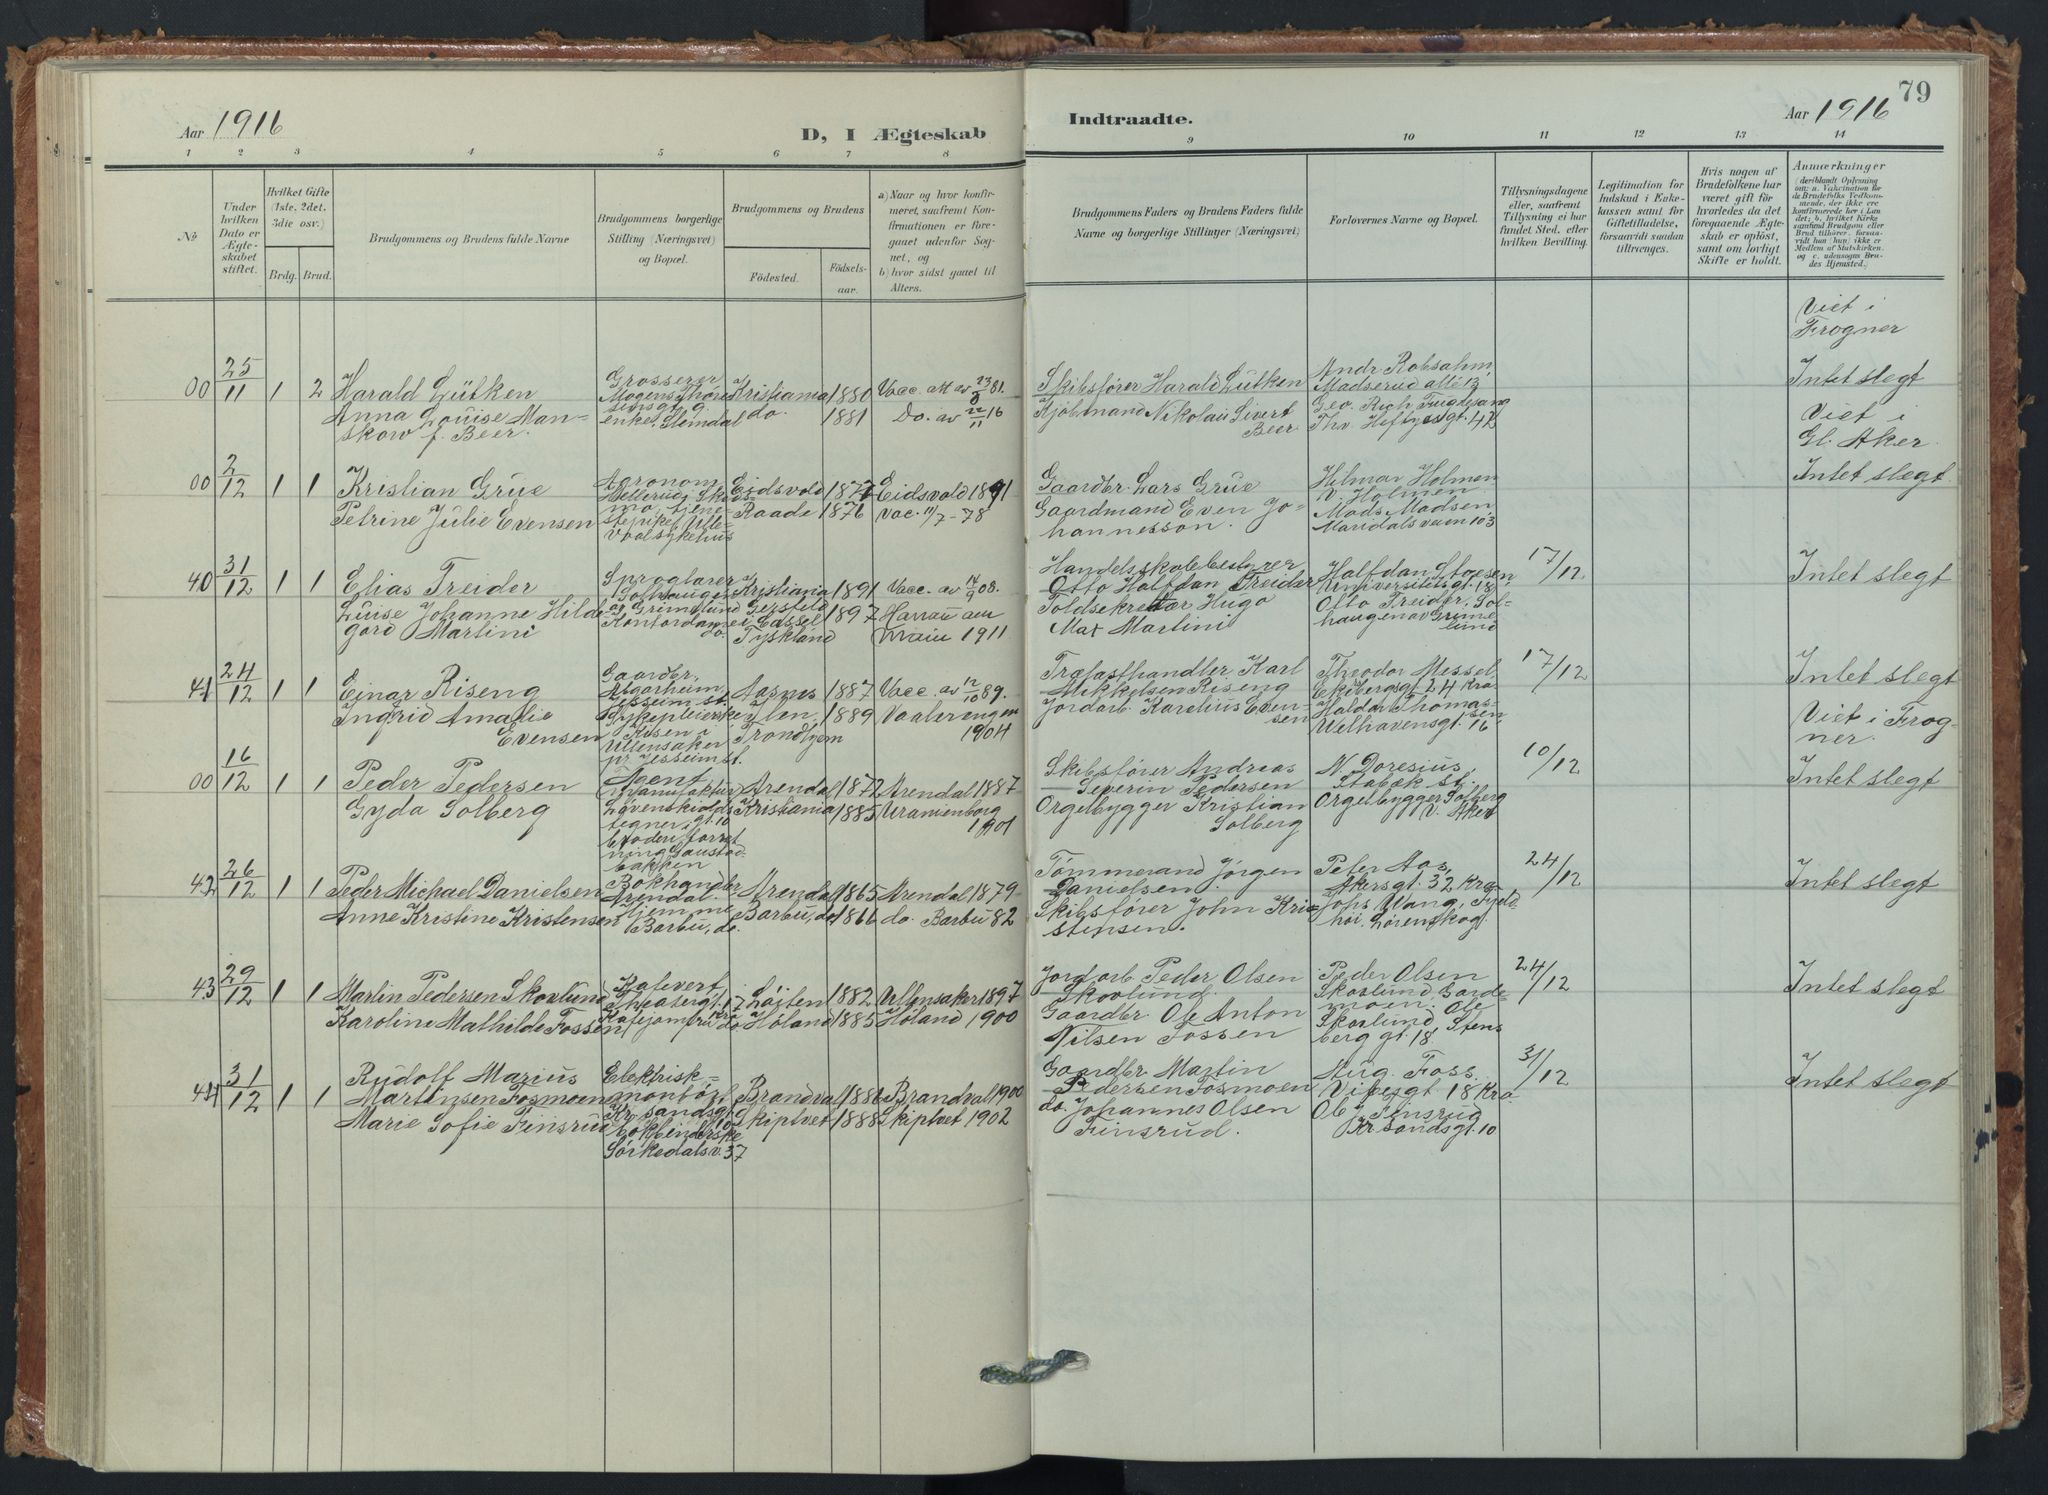 Aar 1916
D, I Ægteskab
Indtraadte.
Aar 1916
79
1 2 3 4 5 6 7 8 9 10 11 12 13 14
No
Under hvilken Dato er Ægteskabet stiftet.
Hvilket Gifte (1ste, 2det, 3die osv.)
Brdg. Brud.
Brudgommens og Brudens fulde Navne
Brudgommens borgerlige Stilling (Næringsvei) og Bopæl.
Brudgommens og Brudens
Födested.
Födselsaar.
a) Naar og hvor konfirmeret, saafremt Konfirmationen er foregaaet udenfor Sognet, og
b) hvor sidst gaaet til Alters.
Brudgommens Faders og Brudens Faders fulde Navne og borgerlige Stillinger (Næringsvei)
Forlovernes Navne og Bopæl.
Tillysningsdagene eller, saafremt Tillysning ei har fundet Sted, efter hvilken Bevilling.
Legitimation for Indskud i Enkekassen samt for Giftetilladelse, forsaavidt saadan tiltrænges.
Hvis nogen af Brudefolkene har været gift för hvorledes da det foregaaende Ægteskab er oplöst, samt om lovligt Skifte er holdt.
Anmærkninger
(deriblandt Oplysning om: a. Vakcination for de Brudefolks Vedkommende, der ikke ere konfirmerede her i Landet; b. hvilket Kirkesamfund Brudgom eller Brud tilhörer, forsaavidt han (hun) ikke er Medlem af Statskirken, og c. udensogns Brudes Hjemsted.)
Viet i
Frogner
00 25/11 1 2 Harald Lütken
Anna Louise Manskow f. Beer.
Grosserer
enke, Slemdal
Kristiania 1880
do. 1881
Vacc. att av 23/8 81.
Do. av 22/11 16
Skibsfører Harald Lütken
Kjøbmand Nikolai Sivert Beer
Andr. Robsahm,
Madserud allé 13,
Geo. Rich Trugdesang
Thv. Heftyesgt. 42
Intet slegt
Viet i
Gl. Aker.
00 2/12 1 1 Kristian Grue
Petrine Julie Evensen
Agronom
Ullevaalsykehus
Eidsvold 1877
Raade 1876
Eidsvold 1891
Vac. 11/7-78
Gaardbr. Lars Grue
Gaardmand Even Johannesson.
Hilmar Holmen
v. Holmen.
Mads Madsen
Maridalsveien 103
Intet slegt
40 31/12 1 1 Elias Treider
Luise Johanne Hildegard Martini
Sproglærer
Solhaugen
av Grimelund
Kontordame
do.
Kristiania 1891
Gersfeld 1897
i Cassel
Tyskland
Vacc. av 14/9 08.
Hanau am
Main 1911
Handelsskolebestyrer
Otto Halfdan Treider
Toldsekretær Hugo
Max Martini
Halfdan Stoesen,
Universitetsgt. 18
Otto Treider, Solhaugen av Grimelund
17/12
Intet slegt
41 24/12 1 1 Einar Riseng
Ingrid Amalie
Evensen
Gaardbr.
Algarheim,
Jessheim st.
Sykepleierske
Risen i
Ullensaker
pr. Jessheim st.
Aasnes 1887
Ilen, 1889
Trondhjem
Vacc. av 12/10 89.
Vaalerengen
1904
Trælasthandler Karl
Mikkelsen Riseng
Jordarb. Karelius Evensen
Theodor Messel,
Ekebergsgt. 24 Kra
Haldor Thomassen
Welhavensgt. 16
17/12
Intet slegt
Viet i Frogner.
00 16/12 1 1 Peder Pedersen
Gyda Solberg
Agent
(Manufaktur)
Løvenskiolds
gt. 10
tegner i
broderiforretning Gaustadbakken
Arendal 1872
Kristiania 1885
Arendal 1887
Uranienborg
1901
Skibsfører Andreas
Severin Pedersen
Orgelbygger Kristian
Solberg
N. Doresius,
Stabæk st.
Orgelbygger Solberg
V. Aker
10/12
Intet slegt
42 26/12 1 1 Peder Michael Danielsen
Anne Kristine Kristensen
Bokhandler
Arendal.
Hjemme
Barbu, do.
Arendal 1865
Barbu, do 1866
Arendal 1879
do. Barbu 82
Tømmermand Jørgen
Danielsen.
Skibsfører John Kristensen.
Peter Aas,
Akersgt. 32 Kra
Johs Wang, Fjeldhøi, Lørenskog.
24/12
Intet slegt
43 29/12 1 1 Martin Pedersen Skovlund
Karoline Mathilde Fossen
Kafevert
Theatergt. 17
Kra
Kafejomfru do
Løjten 1882
Høland 1885
Ullensaker 1897
Høland 1900
Jordarb. Peder Olsen
Skovlund.
Gaardbr. Ole Anton
Nilsen Fossen
Peder Olsen
Skovlund Gardemoen. Ole
Skovlund, Stensberggt. 18
24/12
Intet slegt
44 31/12 1 1 Rudolf Marius
Martinsen Fosmoen
Marie Sofie Finsrud
Elektrisk=
montør,
Kr.sandsgt. 10
bokbinderske
Sørkedalsv. 37
Brandval 1886
Skiptvet 1888
Brandval 1900
Skiptvet 1902
Gaardbr Martin
Pedersen Fosmoen
do. Johannes Olsen
Finsrud.
Aug. Foss
Vibesgt 18 Kra
Ole J. Finsrud
Kr.sandsgt. 10
31/12
Intet slegt